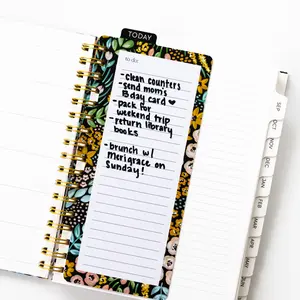 TODAY
to do:
-clean counters
-send moms
Bday card ♥
-pack for
weekend trip
-return library
books
-brunch w/
Merigrace on
Sunday!
SEP
OCT
NOV
DEC
JAN
FEB
MAR
APR
MAY